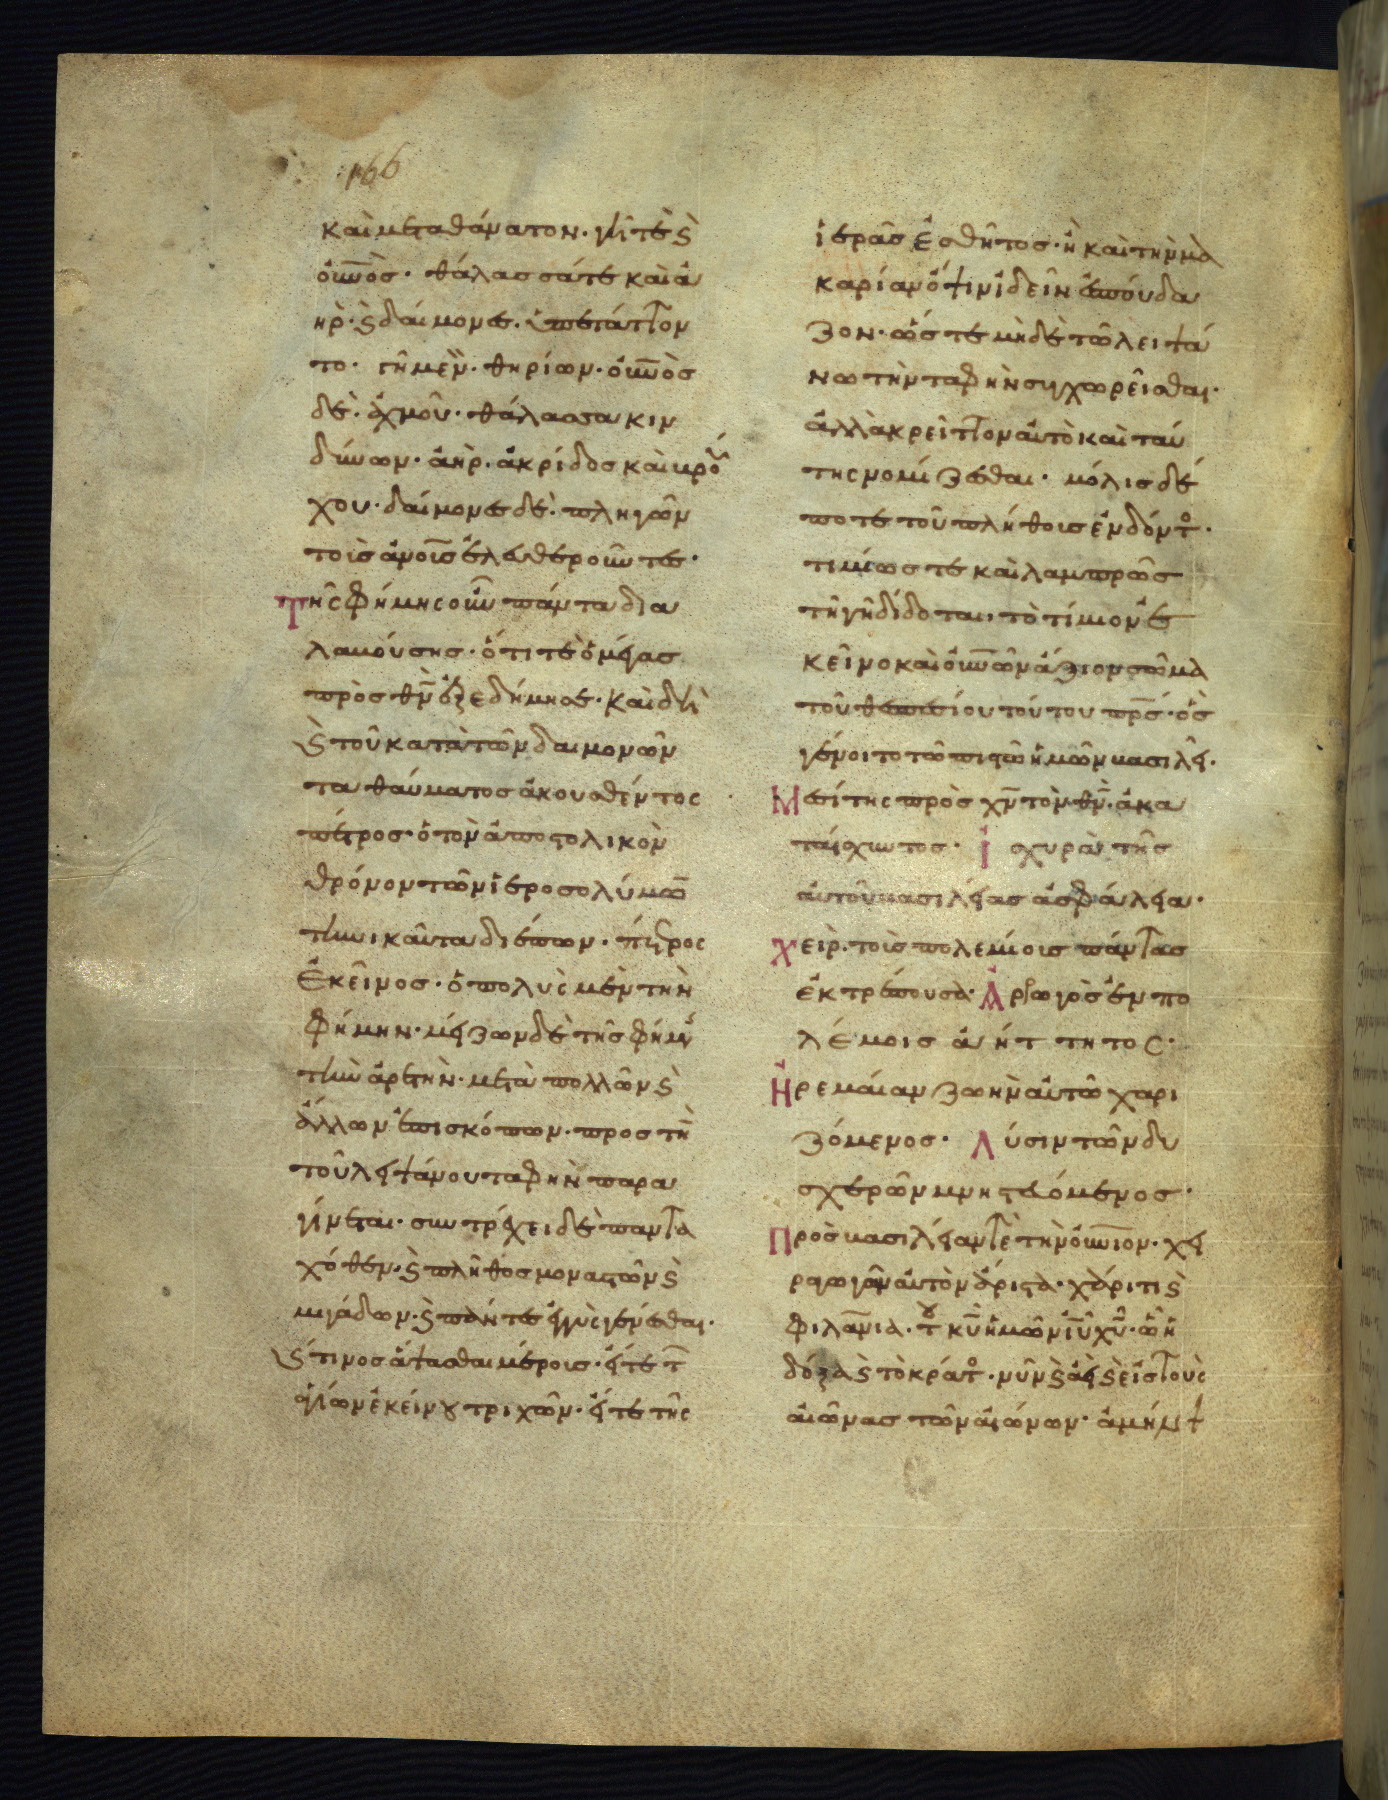 166
καὶ μετα θάνατον. γῆ τὲ ϛ̀
οὐνὸς. θάλασσά τε καὶ ἀ
ὴρ. ϛ̀ δαίμονες. ὑπετάττον
το. γῆ μὲν. θηρίων. οὐνὸσ
δὲ. αὐχμοῦ. θάλασσα κιν
δύνων. ἀὴρ. ἀκρίδος καὶ βρού
χου. δαίμονες δὲ. πληγῶν
τοῖς ἀνοισ ἐλευθεροῦντες.
Τῆς φήμης οὖν πάντα δια
λαβούσης. ὅτι τὲ ὁ μέγας
πρὸς θν ἐξεδήμησε. καὶ δὴ
ϛ τοῦ κατὰ τῶν δαιμονῶν
τα θαύματος ἀκουσθέντος
πέτρος. ὁ τὸν ἀποστολικὸν
θρόνον τῶν ἱεροσολύμων
τηνικαῦτα διέπων. πέτρος
ἐκεῖνος. ὁ πολὺς μὲν τὴν
φήμην. μείζων δὲ τῆς φήμης
τὴν ἀρετήν. μετὰ πολλῶν ϛ̀
ἄλλων ἐπισκόπων. προς τὴν
τοῦ λειψάνου ταφὴν παρα
γίνεται. συντρέχει δὲ παντα
χόθεν. ϛ̀ πλῆθος μοναστῶν ϛ̀
μιγάδων. ϛ̀ πάντες ἐγγὺς γενέσθαι.
ϛ τινος ἅψασθαι μέρους. εἴτε τῶν
ἁγίων ἐκείνου τριχῶν. εἴτε τῆς
ἱερᾶς ἐσθῆτος. ἢ καὶ τὴν μα
καρίαν ὄψιν ἰδεῖν ἐσπούδα
ζον. ὥστε μὴδὲ τῶ λειψά
νω τὴν ταφὴν συγχωρεῖσθαι.
ἀλλὰ κρεῖττον αὐτὸ καὶ ταύ
της νομίζεσθαι. μόλις δέ
ποτε τοῦ πλήθους ἐνδόντος.
τιμίως τὲ καὶ λαμπρῶς
τῆ γῆ δίδοται. τὸ τίμιον ἐ
κεῖνο καὶ οὐνῶν ἄξιον σῶμα
τοῦ θεσπεσίου τούτου πρς. ὃς
γένοιτο τῶ πιστῶ ἡμῶν βασιλεῖ.
Μεσίτης πρὸς χν τὸν θν. ἀκα
ταίσχυντος. Ἰσχυρὰ τῆς
αὐτοῦ βασιλείας ἀσφάλεια.
Χεὶρ. τοὺς πολεμίους πάντας
ἐκτρέπουσα. Ἀρωγὸς ἐν πο
λέμοις ἀήττητος.
Ἠρεμαίαν ζωὴν αὐτῶ χαρι
ζόμενος. Λύσιν τῶν δυ
σχερῶν μνηστευόμενος.
Πρὸς βασιλείαν τὲ τὴν οὐνιον. χει
ραγωγῶν αὐτὸν ἄριστα. χάριτι ϛ̀
φιλανία. τοῦ κυ ἡμῶν ιυ χυ. ὧ ἡ
δόξα ϛ̀ τὸ κράτος. νῦν ϛ̀ ἀεὶ ϛ̀ εἰς τοὺς
αἰῶνας τῶν αἰώνων. ἀμήν